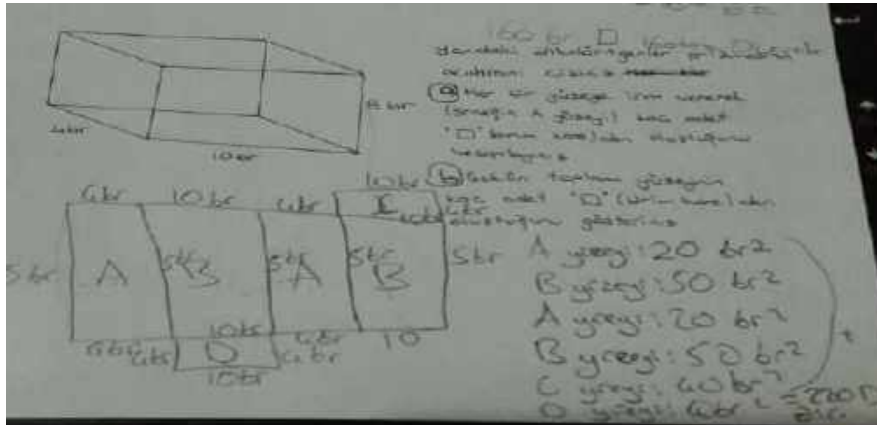 160 br □
Yandaki dikdörtgenler prizmasının
açınımını çiziniz
a) Her bir yüzeye isim vererek
(örneğin A yüzeyi) kaç adet
"□" birim kareden oluştuğunu
hesaplayınız
b) Bütün toplam yüzeyin
kaç adet "□" (birim kare)den
oluştuğunu gösteriniz
5 br
4br
10br
4br 10br 4br 10br
C 4br
5br A 5br B 5br A 5br B 5br
4br 10br 4br 10
4br D 4br
10br
A yüzeyi: 20 br2
B yüzeyi: 50 br2
A yüzeyi: 20 br2
B yüzeyi: 50 br2
C yüzeyi: 40 br2
D yüzeyi: 4br2 = 220 □